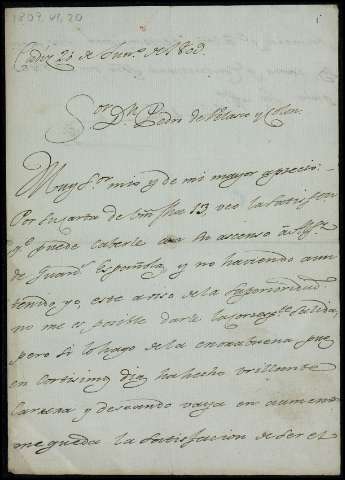 1809.VI.20
Cadiz 20 de Jun.º de 1809.
S.or D.n Pedro de Velasco y Colon.
Muy S.or mio y de mi mayor aprecio:
Por su carta de 13, veo la satisfon
q.e puede caberle su ascenso
de Guard.s Española, y no haviendo aun
tenido yo, este aviso de la Superioridad
no me es posible darle la salida,
pero si lo hago de la enorabuena pues
en cortisimos dias ha hecho vrillante
Carrera y deseando vaya en aumento
me queda la satisfacion de ser el